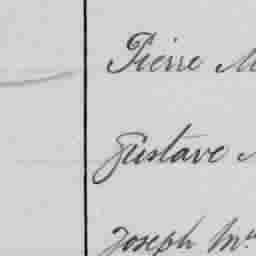 Pierre M
Gustave
Joseph Mc